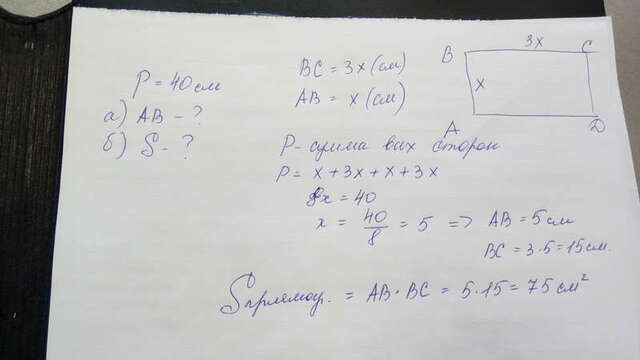 P = 40 см
а) AB - ?
б) S - ?
BC = 3x (см)
AB = x (см)
B
3x
C
x
A
D
P - сумма вых сторон
P = x + 3x + x + 3x
8x = 40
x = 40/8 = 5 => AB = 5 см
BC = 3·5 = 15 см.
Sпрямоуг. = AB · BC = 5·15 = 75 см²